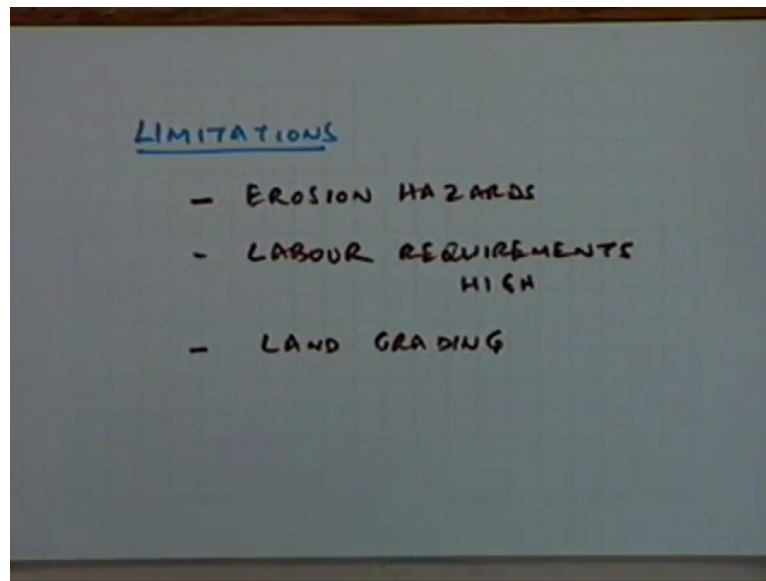 LIMITATIONS
- EROSION HAZARDS
- LABOUR REQUIREMENTS
HIGH
- LAND GRADING